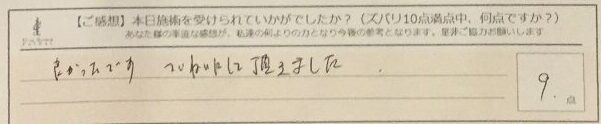 【ご感想】本日施術を受けられていかがでしたか？（ズバリ10点満点中、何点ですか？）
あなた様の率直な感想が、私達の何よりの力となり今後の参考となります。是非ご協力お願いします
良かったです ていねいにして頂きました.
9.点